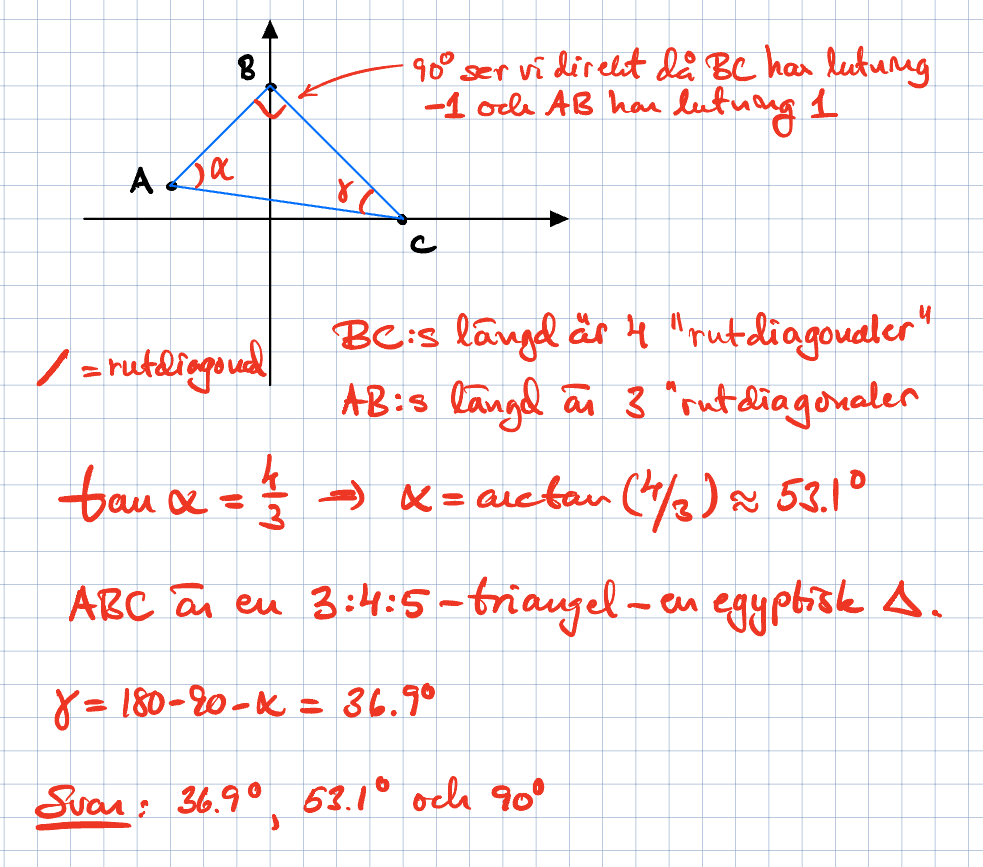 B
90° ser vi direkt då BC har lutning
-1 och AB har lutning 1
A
α
γ
C
BC:s längd är 4 "rutdiagonaler"
/ = rutdiagonal
AB:s längd är 3 "rutdiagonaler
tan α = 4/3 ⇒ α = arctan (4/3) ≈ 53.1°
ABC är en 3:4:5-triangel - en egyptisk Δ.
γ = 180-90-α = 36.9°
Svar: 36.9°, 53.1° och 90°